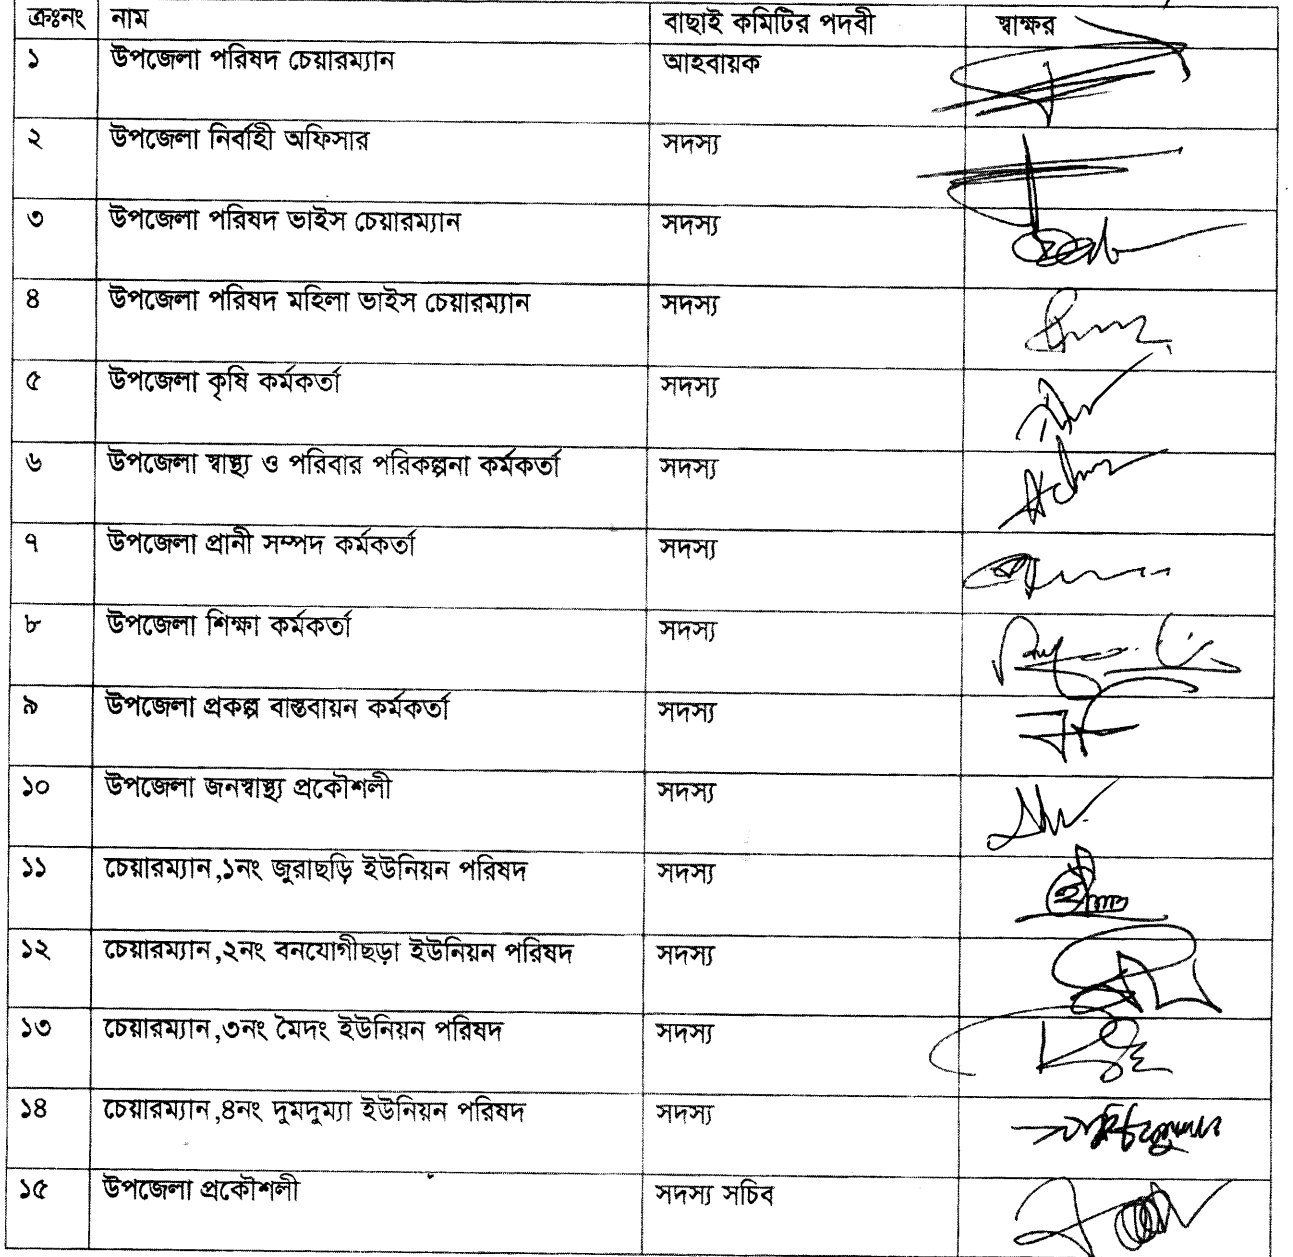 ক্রঃনং নাম বাছাই কমিটির পদবী স্বাক্ষর
১ উপজেলা পরিষদ চেয়ারম্যান আহবায়ক
২ উপজেলা নির্বাহী অফিসার সদস্য
৩ উপজেলা পরিষদ ভাইস চেয়ারম্যান সদস্য
৪ উপজেলা পরিষদ মহিলা ভাইস চেয়ারম্যান সদস্য
৫ উপজেলা কৃষি কর্মকর্তা সদস্য
৬ উপজেলা স্বাস্থ্য ও পরিবার পরিকল্পনা কর্মকর্তা সদস্য
৭ উপজেলা প্রানী সম্পদ কর্মকর্তা সদস্য
৮ উপজেলা শিক্ষা কর্মকর্তা সদস্য
৯ উপজেলা প্রকল্প বাস্তবায়ন কর্মকর্তা সদস্য
১০ উপজেলা জনস্বাস্থ্য প্রকৌশলী সদস্য
১১ চেয়ারম্যান,১নং জুরাছড়ি ইউনিয়ন পরিষদ সদস্য
১২ চেয়ারম্যান,২নং বনযোগীছড়া ইউনিয়ন পরিষদ সদস্য
১৩ চেয়ারম্যান,৩নং মৈদং ইউনিয়ন পরিষদ সদস্য
১৪ চেয়ারম্যান,৪নং দুমদুম্যা ইউনিয়ন পরিষদ সদস্য
১৫ উপজেলা প্রকৌশলী সদস্য সচিব